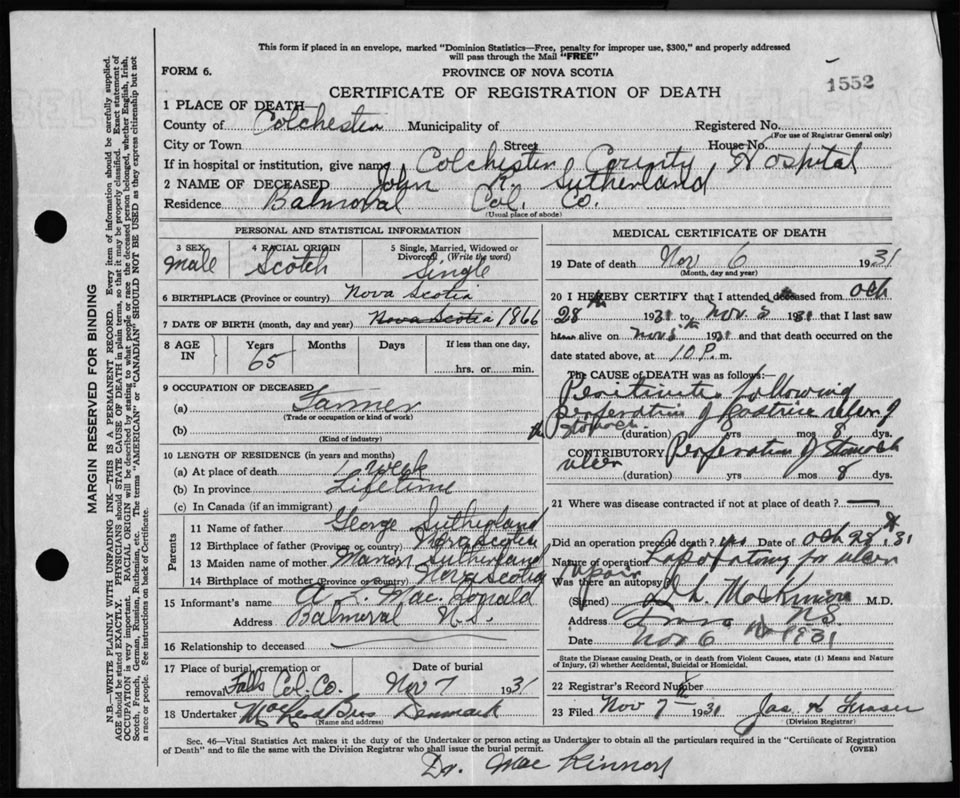 This form if placed in an envelope, marked "Dominion Statistics—Free, penalty for improper use, $300," and properly addressed
will pass through the Mail "FREE"
FORM 6.
PROVINCE OF NOVA SCOTIA
1552
CERTIFICATE OF REGISTRATION OF DEATH
1 PLACE OF DEATH—
County of Colchester Municipality of Registered No.
(For use of Registrar General only)
City or Town Street House No.
If in hospital or institution, give name Colchester County Hospital
2 NAME OF DECEASED John R. Sutherland
Residence Balmoral Col. Co.
(Usual place of abode)
PERSONAL AND STATISTICAL INFORMATION
3 SEX
Male
4 RACIAL ORIGIN
Scotch
5 Single, Married, Widowed or
Divorced (Write the word)
Single
6 BIRTHPLACE (Province or country) Nova Scotia
7 DATE OF BIRTH (month, day and year) Nova Scotia 1866
8 AGE
IN
Years
65
Months
Days
If less than one day,
hrs. or min.
9 OCCUPATION OF DECEASED
(a) Farmer
(Trade or occupation or kind of work)
(b)
(Kind of industry)
10 LENGTH OF RESIDENCE (in years and months)
(a) At place of death 1 week
(b) In province Lifetime
(c) In Canada (if an immigrant)
Parents
11 Name of father George Sutherland
12 Birthplace of father (Province or country) Nova Scotia
13 Maiden name of mother Marion Sutherland
14 Birthplace of mother (Province or country) Nova Scotia
15 Informant's name A. L. MacDonald
Address Balmoral N.S.
16 Relationship to deceased
17 Place of burial, cremation or
removal Falls Col. Co.
Date of burial
Nov 7 1931
18 Undertaker MacLeod Bros Denmark
(Name and address)
MEDICAL CERTIFICATE OF DEATH
19 Date of death Nov 6 1931
(Month, day and year)
20 I HEREBY CERTIFY that I attended deceased from Oct
28th 1931 to Nov. 5 1931 that I last saw
alive on Nov 5th 1931 and that death occurred on the
date stated above, at 10 P. m.
The CAUSE OF DEATH was as follows:—
Peritonitis following
perforation of Gastric ulcer of
stomach.
(duration) yrs mos 8 dys.
CONTRIBUTORY Perforation of Stomach
ulcer
(duration) yrs mos 8 dys.
21 Where was disease contracted if not at place of death? —
Did an operation precede death? yes Date of Oct 28th, 31
Nature of operation Laparotomy for ulcer
repair
Was there an autopsy?
(Signed) D. L. MacKinnon M.D.
Address Truro N.S.
Date Nov 6 1931
State the Disease causing Death, or in death from Violent Causes, state (1) Means and Nature
of Injury, (2) whether Accidental, Suicidal or Homicidal.
22 Registrar's Record Number 8
23 Filed Nov 7th 1931 Jas A Fraser
(Division Registrar)
Sec. 46—Vital Statistics Act makes it the duty of the Undertaker or person acting as Undertaker to obtain all the particulars required in the "Certificate of Registration
of Death" and to file the same with the Division Registrar who shall issue the burial permit.
(OVER)
Dr. MacKinnon
MARGIN RESERVED FOR BINDING
N.B.—WRITE PLAINLY WITH UNFADING INK—THIS IS A PERMANENT RECORD. Every item of information should be carefully supplied.
AGE should be stated EXACTLY. PHYSICIANS should STATE CAUSE OF DEATH in plain terms, so that it may be properly classified. Exact statement of
OCCUPATION is very important. RACIAL ORIGIN will be described by stating to what people or race the deceased person belonged, whether English, Irish,
Scotch, French, German, Russian, Ruthenian, etc. The terms "AMERICAN" or "CANADIAN" SHOULD NOT BE USED as they express citizenship but not
a race or people. See instructions on back of Certificate.